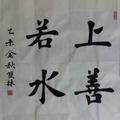 上善
若水
乙未金秋